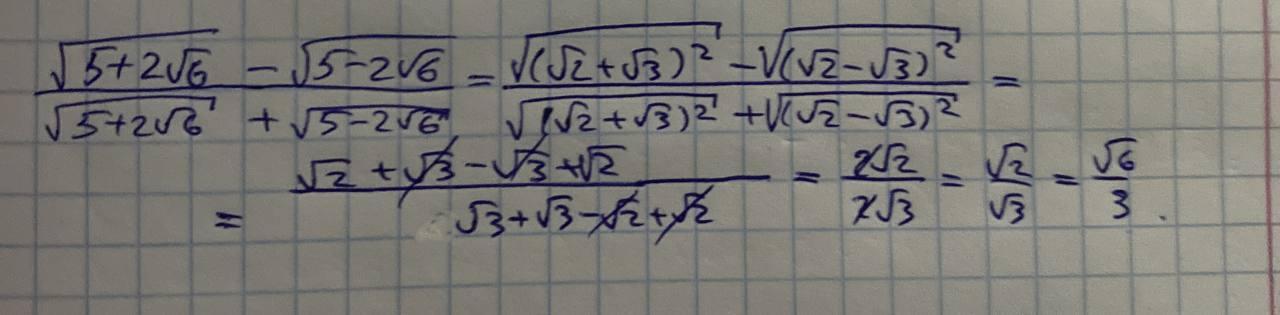 (√(5+2√6) − √(5−2√6))/(√(5+2√6) + √(5−2√6)) = (√((√2+√3)²) − √((√2−√3)²))/(√((√2+√3)²) + √((√2−√3)²)) =
= (√2 + √3 − √3 + √2)/(√3 + √3 − √2 + √2) = 2√2/2√3 = √2/√3 = √6/3.